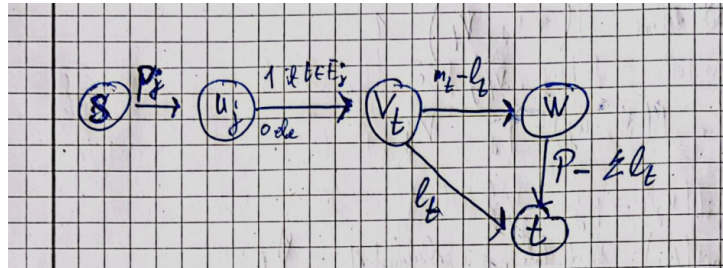 s P_j u_j 1 if t∈E_j V_t m_t-l_t W
0 else
l_t P-Σl_t
t